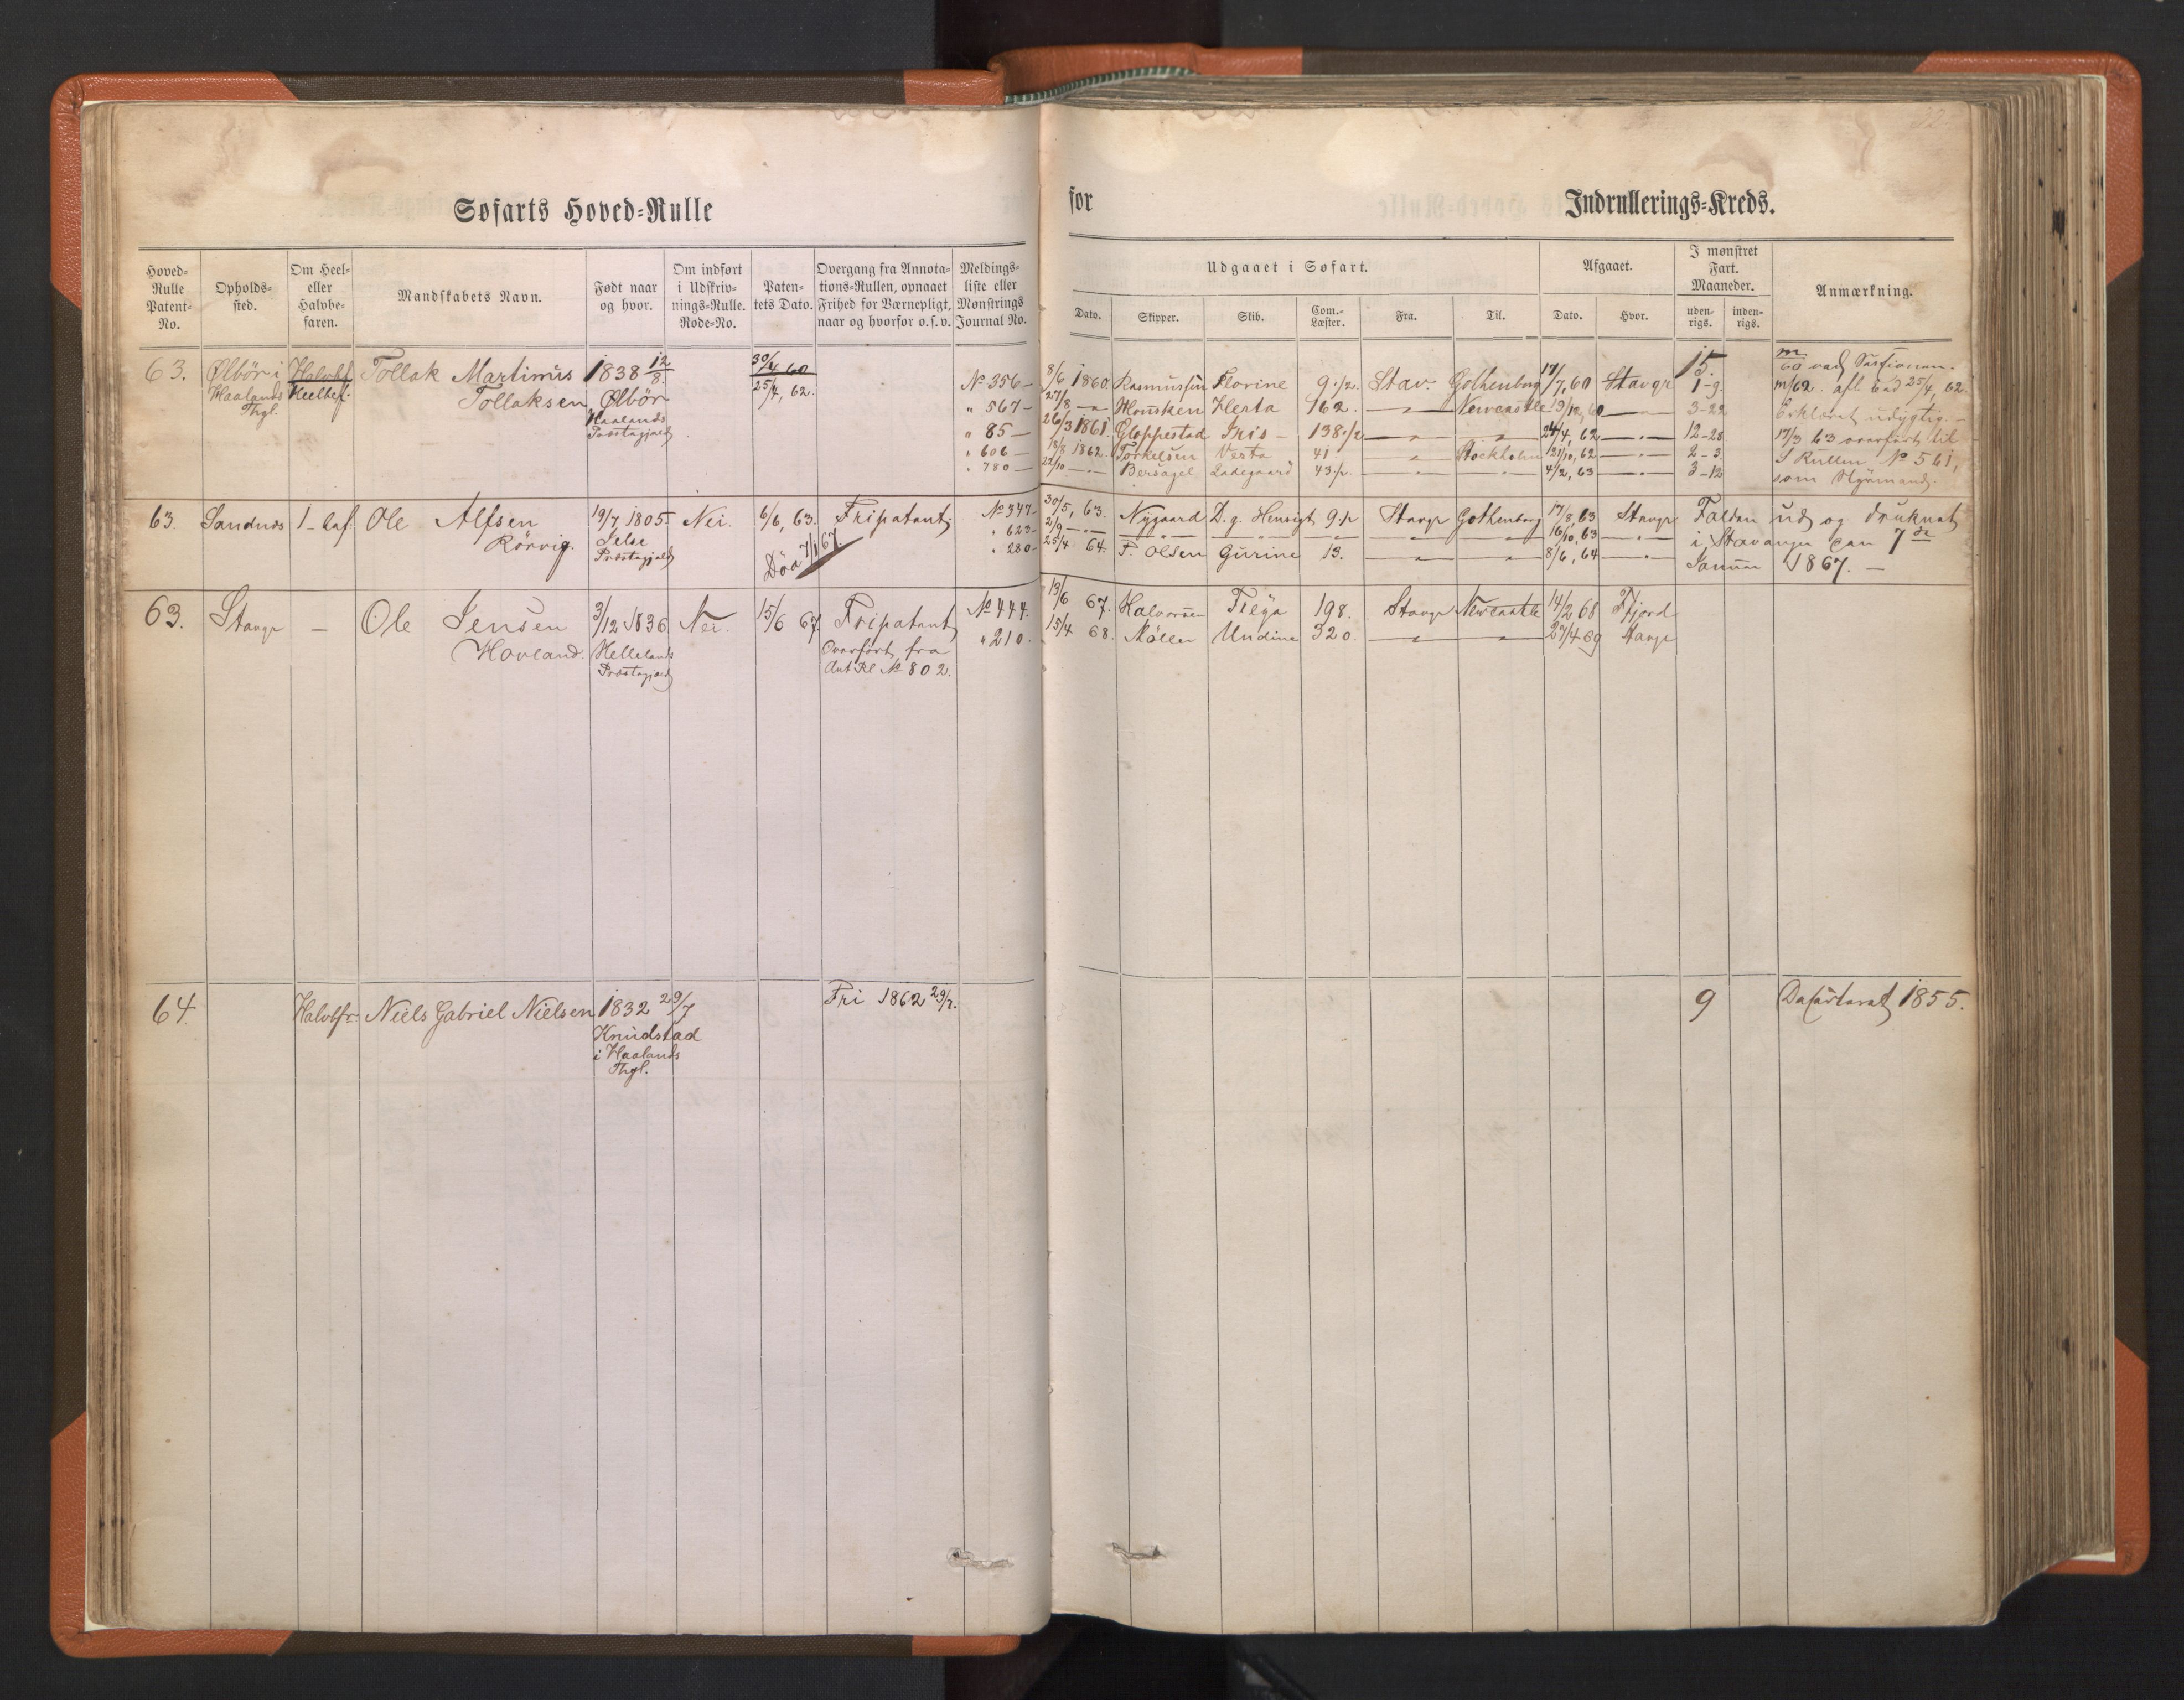 Søfarts Hoved-Rulle
for Indrullerings-Kreds.
Hoved-Rulle Patent-No.
Opholds-sted.
Om Heel- eller Halvbe-faren.
Mandskabets Navn.
Født naar og hvor.
Om indført i Udskriv-nings-Rulle. Rode-No.
Paten-tets Dato.
Overgang fra Annota-tions-Rullen, opnaaet Frihed for Værnepligt, naar og hvorfor o. s. v.
Meldings-liste eller Mønstrings Journal No.
Udgaaet i Søfart.
Dato.
Skipper.
Skib.
Com.-Læster.
Fra.
Til.
Afgaaet.
Dato.
Hvor.
I mønstret Fart. Maaneder.
uden-rigs.
inden-rigs.
Anmærkning.
63. Ølbör i Halvbf. Tollak Martinus 1838 12/8. 30/4 60
Haalands Heelbef. Tollaksen Ølbör 25/4, 62.
Thgl. Haalands
Præstegjeld
No 356 — 8/6 1860 Rasmussen Florine 9 1/2. Stav. Gothenborg 17/7, 60 Stavgr 15.
1-9.
" 567 — 27/8 — Housken Herta 162. — " — Newcastle 19/12, 60 — " — 3-22
" 85 — 26/3 1861. Gloppestad Iris — 138 1/2 — " — 24/4, 62 — " — 12-28
" 606 — 18/8 1862. Torkelsen Vesta 41 — " — Stockholm 31/10, 62 — " — 2-3
" 780 — 22/10 — " — Bersagel Ladegaard 43 1/2. — " — 4/2, 63 — " — 3-12
m/62. afl. Eed 25/4, 62.
Erklæret udygtig. —
17/3 63 overført til
S Rullen No 561,
som Styrmand.
63. Sandnes 1 — Ole Alfsen 19/7 1805. Nei. 6/6, 63. Fripatent,
Rörvig. Jelse
Præstegjeld
Död 7/1 67.
No 347 — 30/5, 63. Nygaard D. g. Hensigt 9 1/2 Stavgr Gothenborg 17/8, 63 Stavgr
" 623 — 2/9 — " — — " — 16/10, 63 — " —
" 280 — 25/4 64. P. Olsen Gurine 13. — " — 8/6, 64 — " —
Falden ud og druknet
i Stavanger den 7de
Januar 1867. —
63. Stavgr — Ole Jensen 3/12 1836 Nei. 15/6 67 Fripatent
Hovland. Hellelands Overført fra
Præstegjeld Ant Rl No 802.
No 444. 13/6 67. Halvorsen Freya 198. Stavgr Newcastle 14/2 68 Fjord
" 210. 15/4 68. Möller Undine 320. — " — 27/4 69 Stavgr
64. Halvbf. Niels Gabriel Nielsen 1832 29/7 Fri 1862 29/7. 9 1855.
Knudstad
i Haalands
Thgl.